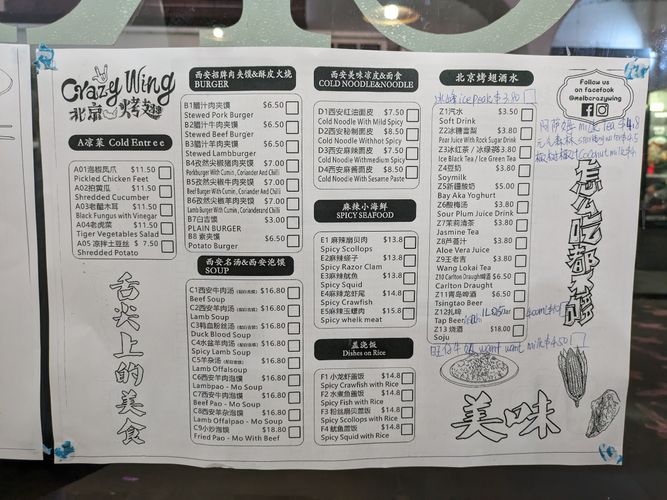 Crazy Wing
北京 烤翅
A凉菜 Cold Entree
A01泡椒凤爪 $11.50
Pickled Chicken Feet
A02拍黄瓜 $11.50
Shredded Cucumber
A03老醋木耳 $11.50
Black Fungus with Vinegar
A04老虎菜 $11.50
Tiger Vegetables Salad
A05 凉拌土豆丝 $ 7.50
Shredded Potato
舌尖上的美食
西安招牌肉夹馍&酥皮火烧
BURGER
B1腊汁肉夹馍 $6.50
Stewed Pork Burger
B2腊汁牛肉夹馍 $6.50
Stewed Beef Burger
B3腊汁羊肉夹馍 $6.50
Stewed Lamburger
B4孜然尖椒猪肉夹馍 $6.50
Porkburger With Cumin, Coriander And Chilli
B5孜然尖椒牛肉夹馍 $6.50
Beef Burger With Cumin, Coriander And Chilli
B6孜然尖椒羊肉夹馍 $6.50
Lamb Burger With Cumin, Coriander and Chilli
B7白吉馍 $3.00
PLAIN BURGER
B8 素夹馍 $6.50
Potato Burger
西安名汤&西安泡馍
SOUP
C1西安牛肉汤 $16.80
Beef Soup
C2西安羊肉汤 $16.80
Lamb Soup
C3鸭血粉丝汤 $16.80
Duck Blood Soup
C4水盆羊肉汤 $16.80
Spicy Lamb Soup
C5羊杂汤 $16.80
Lamb Offalsoup
C6西安羊肉泡馍 $16.80
Lambpao - Mo Soup
C7西安牛肉泡馍 $16.80
Beef Pao - Mo Soup
C8西安羊杂泡馍 $16.80
Lamb Offalpao - Mo Soup
C9小炒泡馍 $18.80
Fried Pao - Mo With Beef
西安美味凉皮&面食
COLD NOODLE&NOODLE
D1西安红油面皮 $7.50
Cold Noodle With Mild Spicy
D2西安秘制面皮 $8.50
Cold Noodle Withhot Spicy
D3西安麻辣面皮 $7.50
Cold Noodle Withmedium Spicy
D4西安麻酱面皮 $8.50
Cold Noodle With Sesame Paste
麻辣小海鲜
SPICY SEAFOOD
E1 麻辣扇贝肉 $13.8
Spicy Scollops
E2麻辣蛏子 $13.8
Spicy Razor Clam
E3麻辣鱿鱼 $13.8
Spicy Squid
E4麻辣龙虾尾 $14.8
Spicy Crawfish
E5麻辣玉螺肉 $15.8
Spicy whelk meat
盖浇饭
Dishes on Rice
F1 小龙虾盖饭 $14.5
Spicy Crawfish with Rice
F2 水煮鱼盖饭 $14.5
Spicy Fish with Rice
F3 粉丝扇贝盖饭 $14.5
Spicy Scollops with Rice
F4 鱿鱼盖饭 $14.5
Spicy Squid with Rice
北京烤翅酒水
冰峰 ice Peak $3.80
Z1汽水 $3.50
Soft Drink
Z2冰糖雪梨 $3.80
Pear Juice With Rock Sugar Drink
Z3冰红茶 / 冰绿茶 $3.80
Ice Black Tea / Ice Green Tea
Z4豆奶 $3.80
Soymilk
Z5新疆酸奶 $5.00
Bay Aka Yoghurt
Z6酸梅汤 $3.80
Sour Plum Juice Drink
Z7茉莉清茶 $3.80
Jasmine Tea
Z8芦荟汁 $3.80
Aloe Vera Juice
Z9王老吉 $3.80
Wang Lokai Tea
Z10 Carlton Draught啤酒 $6.50
Carlton Draught
Z11青岛啤酒 $6.50
Tsingtao Beer
Z12扎啤
Tap Beer
Z13 烧酒 $18.00
Soju
旺仔牛奶 want want milk $4.50
Follow us
on facefook
@melbcrazywing
阿萨姆 milk Tea $4.8
美味